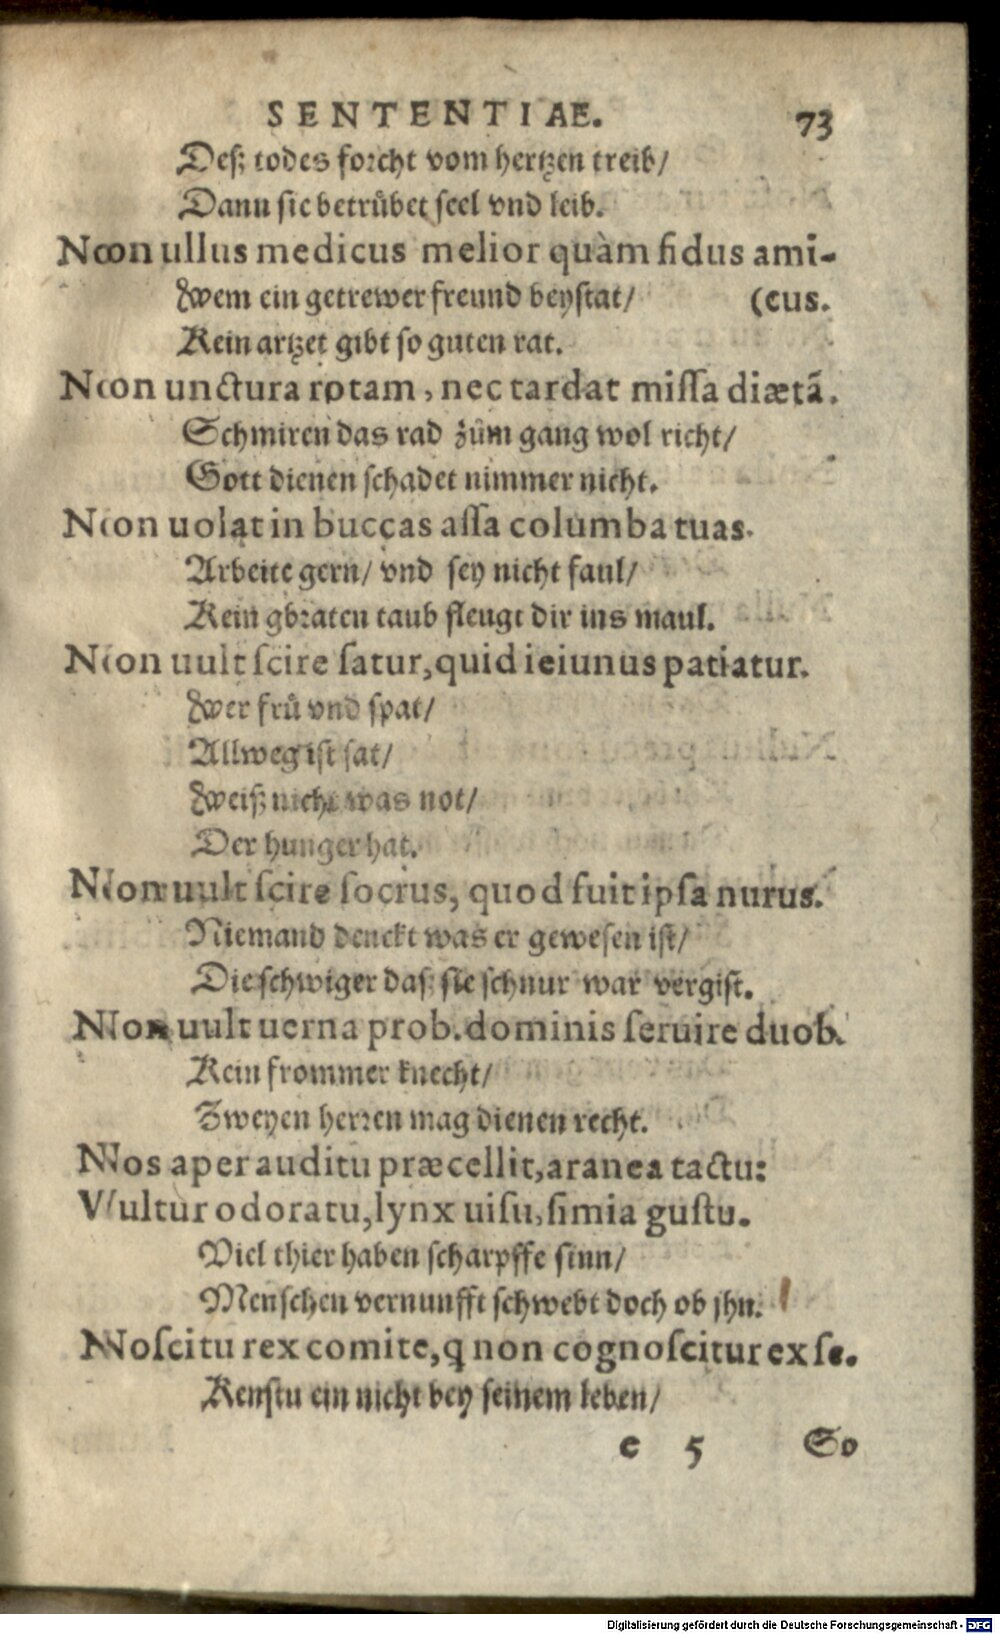 SENTENTIAE. 73
Deß todes forcht vom hertzen treib/
Dann sie betrůbet seel vnd leib.
Non ullus medicus melior quàm fidus ami-
Wem ein getrewer freund beystat/ (cus.
Kein artzet gibt so guten rat.
Non unctura rotam, nec tardat missa diætã.
Schmiren das rad zům gang wol richt/
Gott dienen schadet nimmer nicht.
Non uolat in buccas assa columba tuas.
Arbeite gern/ vnd sey nicht faul/
Kein gbraten taub fleugt dir ins maul.
Non uult scire satur, quid ieiunus patiatur.
Wer frů vnd spat/
Allweg ist sat/
Weiß nicht was not/
Der hunger hat.
Non uult scire socrus, quod fuit ipsa nurus.
Niemand denckt was er gewesen ist/
Die schwiger das sie schnur war vergist.
Non uult uerna prob. dominis seruire duob.
Kein frommer knecht/
Zweyen herren mag dienen recht.
Nos aper auditu præcellit, aranea tactu:
Vultur odoratu, lynx uisu, simia gustu.
Viel thier haben scharpffe sinn/
Menschen vernunfft schwebt doch ob jhn.
Noscitu rex comite, q non cognoscitur ex se.
Kenstu ein nicht bey seinem leben/
e 5 So
Digitalisierung gefördert durch die Deutsche Forschungsgemeinschaft - DFG